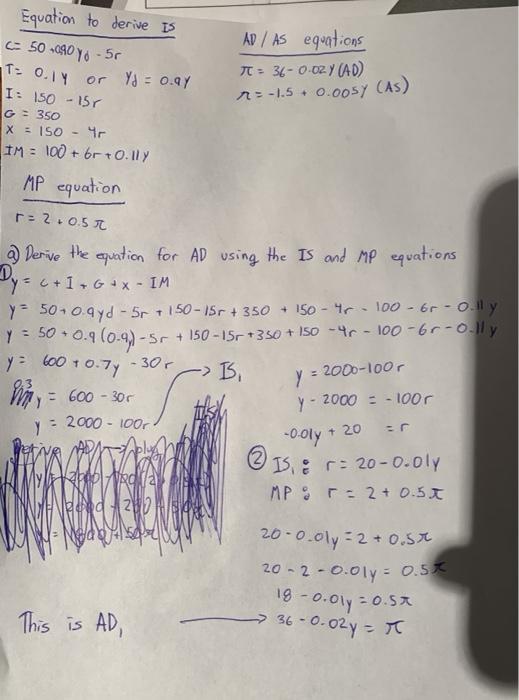 Equation to derive IS
C= 50+0.90yd - 5r
T= 0.1Y or Yd = 0.9Y
I= 150 - 15r
G = 350
X = 150 - 4r
IM = 100 + 6r + 0.11y
AD / AS equations
π = 36 - 0.02Y (AD)
π = -1.5 + 0.005Y (AS)
MP equation
r = 2 + 0.5 π
a) Derive the equation for AD using the IS and MP equations
① y = C + I + G + X - IM
y = 50 + 0.9yd - 5r + 150 - 15r + 350 + 150 - 4r - 100 - 6r - 0.11y
y = 50 + 0.9(0.9y) - 5r + 150 - 15r + 350 + 150 - 4r - 100 - 6r - 0.11y
y = 600 + 0.7y - 30r
0.3 y = 600 - 30r
y = 2000 - 100r
→ IS,
y = 2000 - 100r
y - 2000 = -100r
-0.01y + 20 = r
② IS, : r = 20 - 0.01y
MP : r = 2 + 0.5π
20 - 0.01y = 2 + 0.5π
20 - 2 - 0.01y = 0.5π
18 - 0.01y = 0.5π
This is AD, → 36 - 0.02y = π